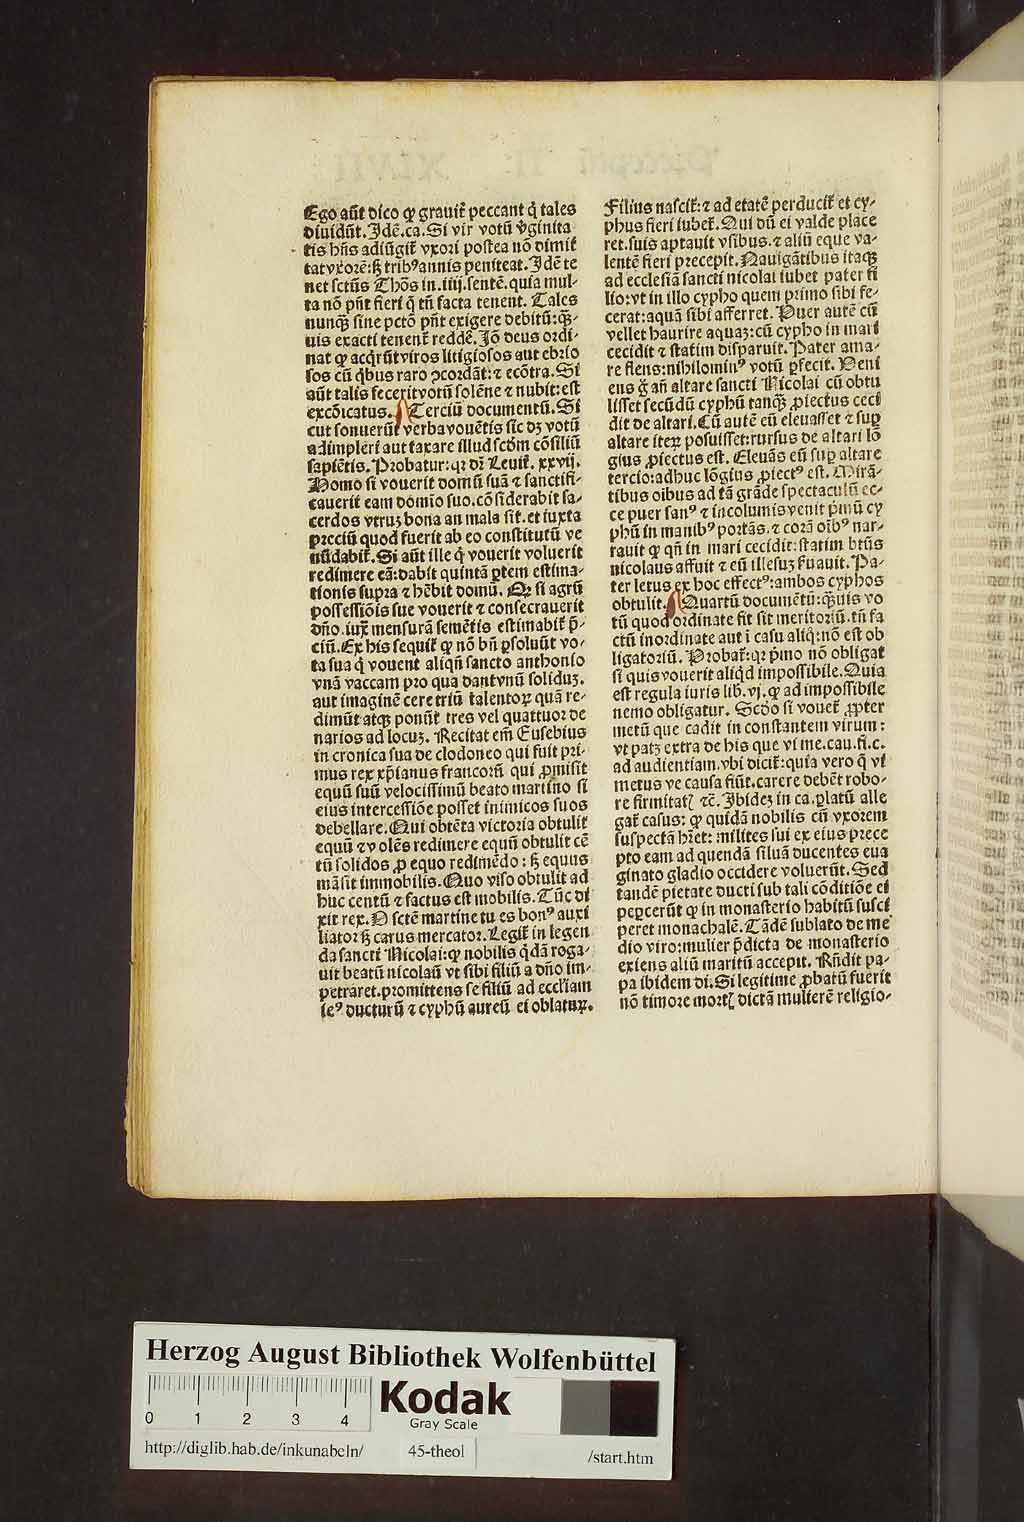 Ego aūt dico ꝙ grauiꝰ peccant q̇ tales
diuidūt. Idē.ca. Si vir votū v̄ginita
tis hn̄s adiūgit᷑ vxori postea nō dimit᷑
tat vxorē: ꝫ tribꝰ annis peniteat. Idē te
net sctūs Thōs in.iiij.sentē. quia mul-
ta nō pn̄t fieri q̇ tn̄ facta tenent. Tales
nunqꝫ sine pctō pn̄t exigere debitū: qꝫ-
uis exacti tenent᷑ reddē. Iō deus ordi-
nat ꝙ acq̇rūt viros litigiosos aut ebrio
sos cū q̇bus raro ꝯcordāt: ⁊ ecōtra. Si
aūt talis fecerit votū solēne ⁊ nubit: est
excōicatus. Terciū documentū. Si
cut sonuerūt verba vouētis sic dꝫ votū
adimpleri aut taxare illud scdm cōsiliū
sapiētis. Probatur: qꝛ dꝛ Leuit᷑. xxvij.
Homo si vouerit domū suā ⁊ sanctifi-
cauerit eam domino suo. cōsiderabit sa-
cerdos vtruꝫ bona an mala sit. et iuxta
preciū quod fuerit ab eo constitutū ve
nūdabit᷑. Si aūt ille q̇ vouerit voluerit
redimere eā: dabit quintā ꝑtem estima-
tionis supra ⁊ hēbit domū. Qꝛ si agrū
possessiōis sue vouerit ⁊ consecrauerit
dn̄o. iux̄ mensurā semētis estimabit᷑ p̄-
ciū. Ex his sequit᷑ ꝙ nō bn̄ ꝑsoluūt vo-
ta sua q̇ vouent aliqn̄ sancto anthonio
vnā vaccam pro qua dant vnū soliduꝫ.
aut imaginē cere triū talentoꝝ quā re-
dimūt atqꝫ ponūt tres vel quattuor de
narios ad locuꝫ. Recitat em̄ Eusebius
in cronica sua de clodoneo qui fuit pri-
mus rex xp̄ianus francorū qui ꝓmisit
equū suū velocissimū beato martino si
eius intercessiōe posset inimicos suos
debellare. Qui obtēta victoria obtulit
equū ⁊ volēs redimere equū obtulit cē
tū solidos ꝓ equo redimēdo: ꝫ equus
māsit immobilis. Quo viso obtulit ad
huc centū ⁊ factus est mobilis. Tūc di
xit rex. O sctē martine tu es bonꝰ auxi
liator ꝫ carus mercator. Legit᷑ in legen
da sancti Nicolai: ꝙ nobilis q̇dā roga-
uit beatū nicolaū vt sibi filiū a dn̄o im-
petraret. promittens se filiū ad eccl̄iam
ieꝰ ducturū ⁊ cyphū aureū ei oblatuꝝ.
Filius nascit᷑: ⁊ ad etatē perducit᷑ et cy-
phus fieri iubet᷑. Qui dū ei valde place
ret. suis aptauit vsibus. ⁊ aliū eque va-
lentē fieri precepit. Nauigātibus itaqꝫ
ad ecclesiā sancti nicolai iubet pater fi
lio: vt in illo cypho quem primo sibi fe-
cerat: aquā sibi afferret. Puer autē cū
vellet haurire aquaꝫ: cū cypho in mari
cecidit ⁊ statim disparuit. Pater ama-
re flens: nihilominꝰ votū ꝑfecit. Veni
ens g̊ an̄ altare sancti Nicolai cū obtu
lisset secūdū cyphū tanqꝫ ꝓiectus ceci
dit de altari. Cū autē eū eleuasset ⁊ suꝑ
altare iteꝝ posuisset: rursus de altari lō
gius ꝓiectus est. Eleuās eū suꝑ altare
tercio: adhuc lōgius ꝓiectꝰ est. Mirā-
tibus oībus ad tā grāde spectaculū ec-
ce puer sanꝰ ⁊ incolumis venit p̄mū cy
phū in manibꝰ portās. ⁊ corā oībꝰ nar-
rauit ꝙ qn̄ in mari cecidit: statim bt̄us
nicolaus affuit ⁊ eū illesuꝫ ẜuauit. Pa-
ter letus ex hoc effectꝰ: ambos cyphos
obtulit. Quartū documētū: qꝫuis vo
tū quod ordinate fit sit meritoriū. tn̄ fa
ctū inordinate aut ī casu aliq̊: nō est ob
ligatoriū. Probat᷑: qꝛ p̄mo nō obligat
si quis vouerit aliq̇d impossibile. Quia
est regula iuris lib. vj. ꝙ ad impossibile
nemo obligatur. Scdo si vouet᷑ ꝓpter
metū que cadit in constantem virum:
vt patꝫ extra de his que vi me.cau.fi.c.
ad audientiam. vbi dicit᷑: quia vero q̇ vi
metus ve causa fiūt. carere debēt robo-
re firmitatꝭ ⁊c̄. Ibideꝫ in ca. ꝑlatū alle
gat᷑ casus: ꝙ quidā nobilis cū vxorem
suspectā hr̄et: milites sui ex eius prece
pto eam ad quendā siluā ducentes eua
ginato gladio occidere voluerūt. Sed
tandē pietate ducti sub tali cōditiōe ei
peꝑcerūt ꝙ in monasterio habitū susci
peret monachalē. Tādē sublato de me
dio viro: mulier p̄dicta de monasterio
exiens aliū maritū accepit. Rn̄dit pa-
pa ibidem di. Si legitime ꝓbatū fuerit
nō timore mortꝭ dictā mulierē religio-
Herzog August Bibliothek Wolfenbüttel
0 1 2 3 4
Kodak
Gray Scale
http://diglib.hab.de/inkunabeln/ 45-theol /start.htm